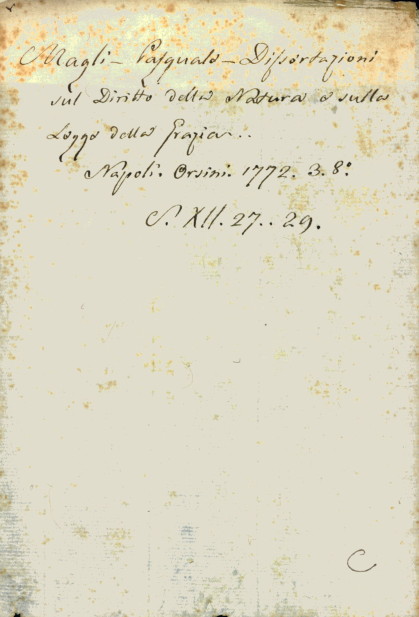 Magli - Pasquale - Dissertazioni
sul Diritto della Natura e sulla
Legge della Grazia..
Napoli. Orsini. 1772. 3. 8°.
S. XII. 27.. 29.
C